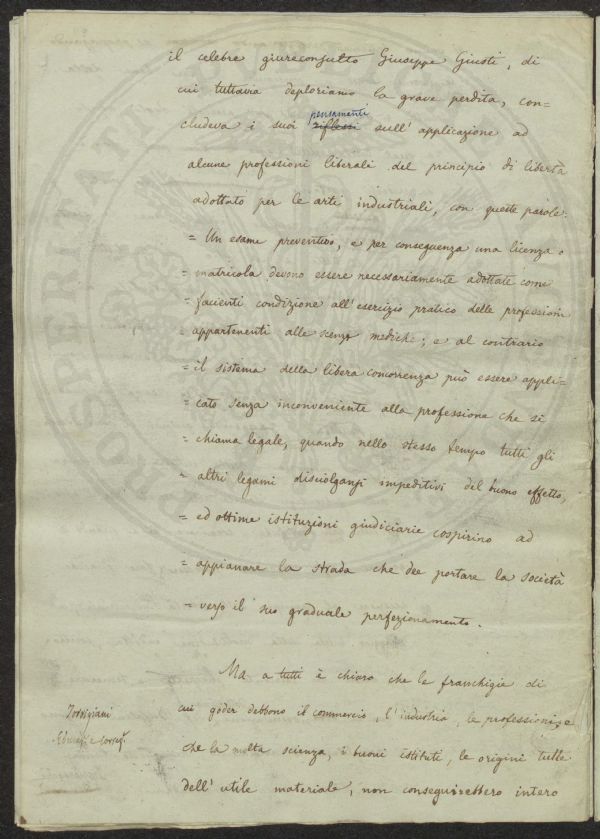 il celebre giureconsulto Giuseppe Giusti, di
cui tuttavia deploriamo la grave perdita, con-
cludeva i suoi riflessi pensamenti sull' applicazione ad
alcune professioni liberali del principio di libertà
adottato per le arti industriali, con queste parole:
= Un esame preventivo, e per conseguenza una licenza o
= matricola devono essere necessariamente adottate come
= facienti condizione all' esercizio pratico delle professioni
= appartenenti alle scenze mediche; e al contrario
= il sistema della libera concorrenza può essere appli-
= cato senza inconveniente alla professione che si
= chiama legale, quando nello stesso tempo tutti gli
= altri legami disciolgansi impeditivi del buono effetto,
= ed ottime istituzioni giudiciarie cospirino ad
= appianare la strada che dee portare la società
= verso il suo graduale perfezionamento.
Ma a tutti è chiaro che le franchigie di
cui goder debbono il commercio, l' industria, le professioni, e
che la molta scienza, i buoni istituti, le origini tutte
dell' utile materiale, non conseguirebbero intero
Torrigiani